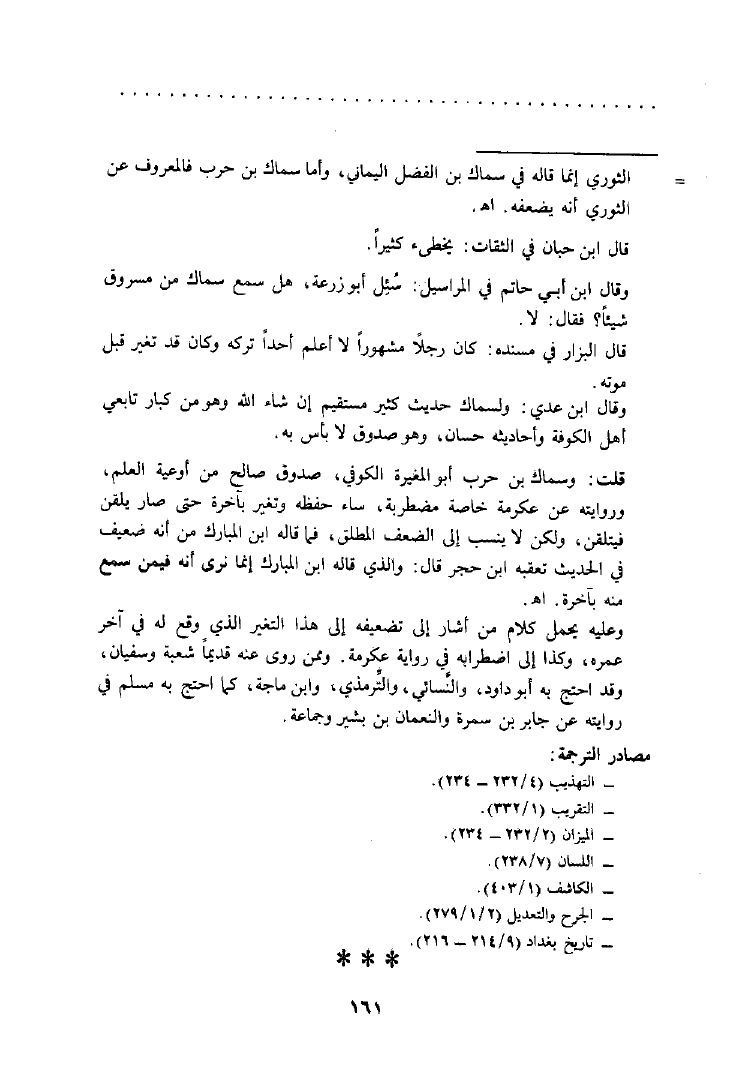 = الثوري إنما قاله في سماك بن الفضل اليماني، وأما سماك بن حرب فالمعروف عن
الثوري أنه يضعفه. اهـ.
قال ابن حبان في الثقات: يخطىء كثيراً.
وقال ابن أبي حاتم في المراسيل: سُئِل أبو زرعة، هل سمع سماك من مسروق
شيئاً؟ فقال: لا.
قال البزار في مسنده: كان رجلًا مشهوراً لا أعلم أحداً تركه وكان قد تغير قبل
موته.
وقال ابن عدي: ولسماك حديث كثير مستقيم إن شاء الله وهو من كبار تابعي
أهل الكوفة وأحاديثه حسان، وهو صدوق لا بأس به.
قلت: وسماك بن حرب أبو المغيرة الكوفي، صدوق صالح من أوعية العلم،
وروايته عن عكرمة خاصة مضطربة، ساء حفظه وتغير بآخرة حتى صار يلقن
فيتلقن، ولكن لا ينسب إلى الضعف المطلق، فما قاله ابن المبارك من أنه ضعيف
في الحديث تعقبه ابن حجر قال: والذي قاله ابن المبارك إنما نرى أنه فيمن سمع
منه بآخرة. اهـ.
وعليه يحمل كلام من أشار إلى تضعيفه إلى هذا التغير الذي وقع له في آخر
عمره، وكذا إلى اضطرابه في رواية عكرمة. وممن روى عنه قديماً شعبة وسفيان،
وقد احتج به أبو داود، والنَّسائي، والتِّرمذي، وابن ماجة، كما احتج به مسلم في
روايته عن جابر بن سمرة والنعمان بن بشير وجماعة.
مصادر الترجمة:
– التهذيب (٢٣٢/٤ – ٢٣٤).
– التقريب (٣٣٢/١).
– الميزان (٢٣٢/٢ – ٢٣٤).
– اللسان (٢٣٨/٧).
– الكاشف (٤٠٣/١).
– الجرح والتعديل (٢٧٩/١/٢).
– تاريخ بغداد (٢١٤/٩ – ٢١٦).
* * *
١٦١